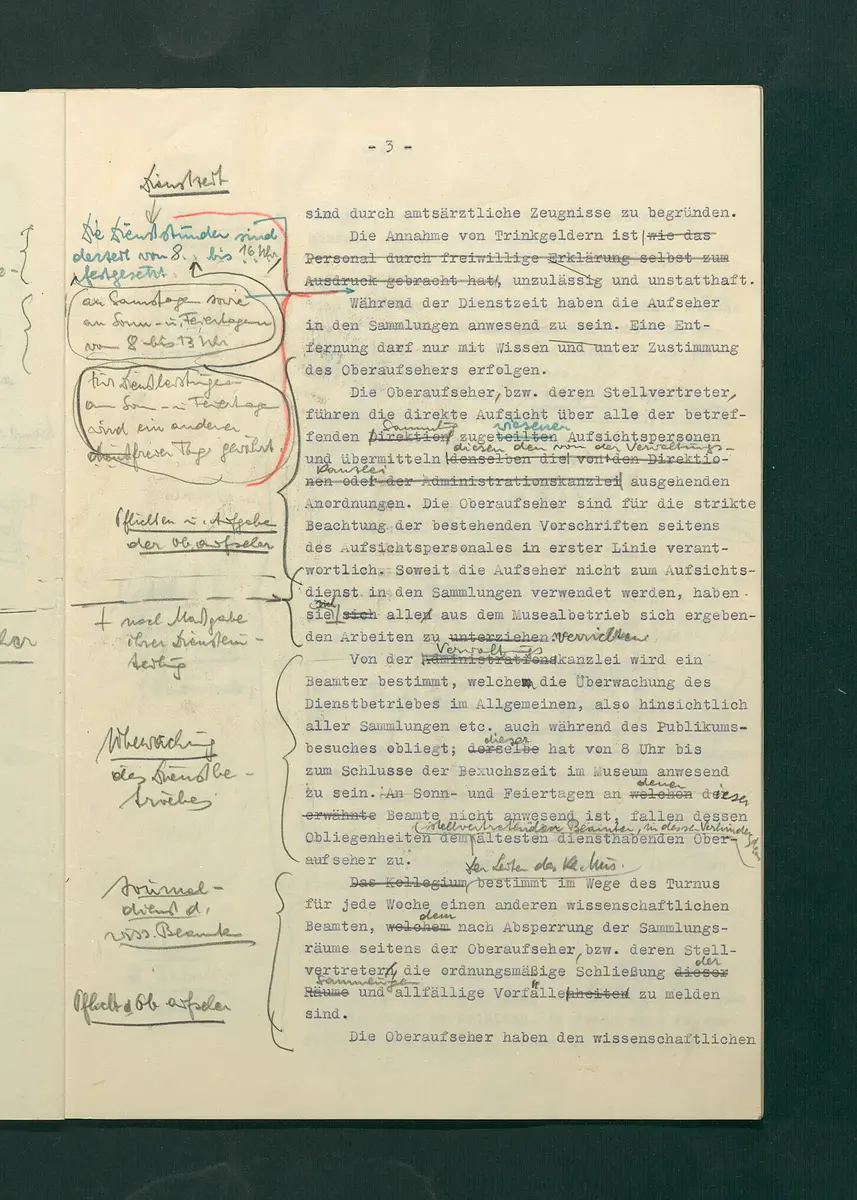 - 3 -
Dienstzeit
Die Dienststunden sind
derzeit von 8 bis 16 Uhr
festgesetzt.
an Samstagen sowie
an Sonn- u. Feiertagen
von 8 bis 13 Uhr
für Dienstleistungen
an Sonn- u. Feiertagen
wird ein anderer
dienstfreier Tag gewährt.
Pflichten u. Aufgabe
der Ob. aufseher
+ nach Maßgabe
ihrer Dienstein-
teilung
Überwachung
des Dienstbe-
triebes
Journal-
dienst d.
wiss. Beamten
Pflicht d. Ob aufseher
sind durch amtsärztliche Zeugnisse zu begründen.
Die Annahme von Trinkgeldern ist wie das
Personal durch freiwillige Erklärung selbst zum
Ausdruck gebracht hat, unzulässig und unstatthaft.
Während der Dienstzeit haben die Aufseher
in den Sammlungen anwesend zu sein. Eine Ent-
fernung darf nur mit Wissen und unter Zustimmung
des Oberaufsehers erfolgen.
Die Oberaufseher, bzw. deren Stellvertreter,
führen die direkte Aufsicht über alle der betref-
Sammlg wiesenen
fenden Direktion zugeteilten Aufsichtspersonen
diesen den von der Verwaltungs-
und übermitteln denselben die von den Direktio-
kanzlei
nen oder der Administrationskanzlei ausgehenden
Anordnungen. Die Oberaufseher sind für die strikte
Beachtung der bestehenden Vorschriften seitens
des Aufsichtspersonales in erster Linie verant-
wortlich. Soweit die Aufseher nicht zum Aufsichts-
dienst in den Sammlungen verwendet werden, haben
sie sich aller aus dem Musealbetrieb sich ergeben-
den Arbeiten zu unterziehen. verrichten
Verwaltungs
Von der Administrationskanzlei wird ein
Beamter bestimmt, welchem die Überwachung des
Dienstbetriebes im Allgemeinen, also hinsichtlich
aller Sammlungen etc. auch während des Publikums-
dieser
besuches obliegt; derselbe hat von 8 Uhr bis
zum Schlusse der Bexuchszeit im Museum anwesend
denen
zu sein. An Sonn- und Feiertagen an welchen dieser
erwähnte Beamte nicht anwesend ist, fallen dessen
stellvertretenden Beamten, in dessen Verhinderg
Obliegenheiten dem ältesten diensthabenden Ober-
aufseher zu.
Der Leiter des
Das Kollegium bestimmt im Wege des Turnus
für jede Woche einen anderen wissenschaftlichen
dem
Beamten, welchem nach Absperrung der Sammlungs-
räume seitens der Oberaufseher, bzw. deren Stell-
der
vertreter, die ordnungsmäßige Schließung dieser
Sammlungen
Räume und allfällige Vorfällenheiten zu melden
sind.
Die Oberaufseher haben den wissenschaftlichen